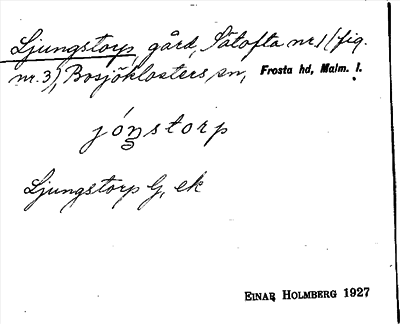 Ljungstorp, gård, Sätofta nr 1 (fig.
nr. 3), Bosjöklosters sn, Frosta hd, Malm. l.
jóṉstorp
Ljungstorp G, ek
EINAR HOLMBERG 1927